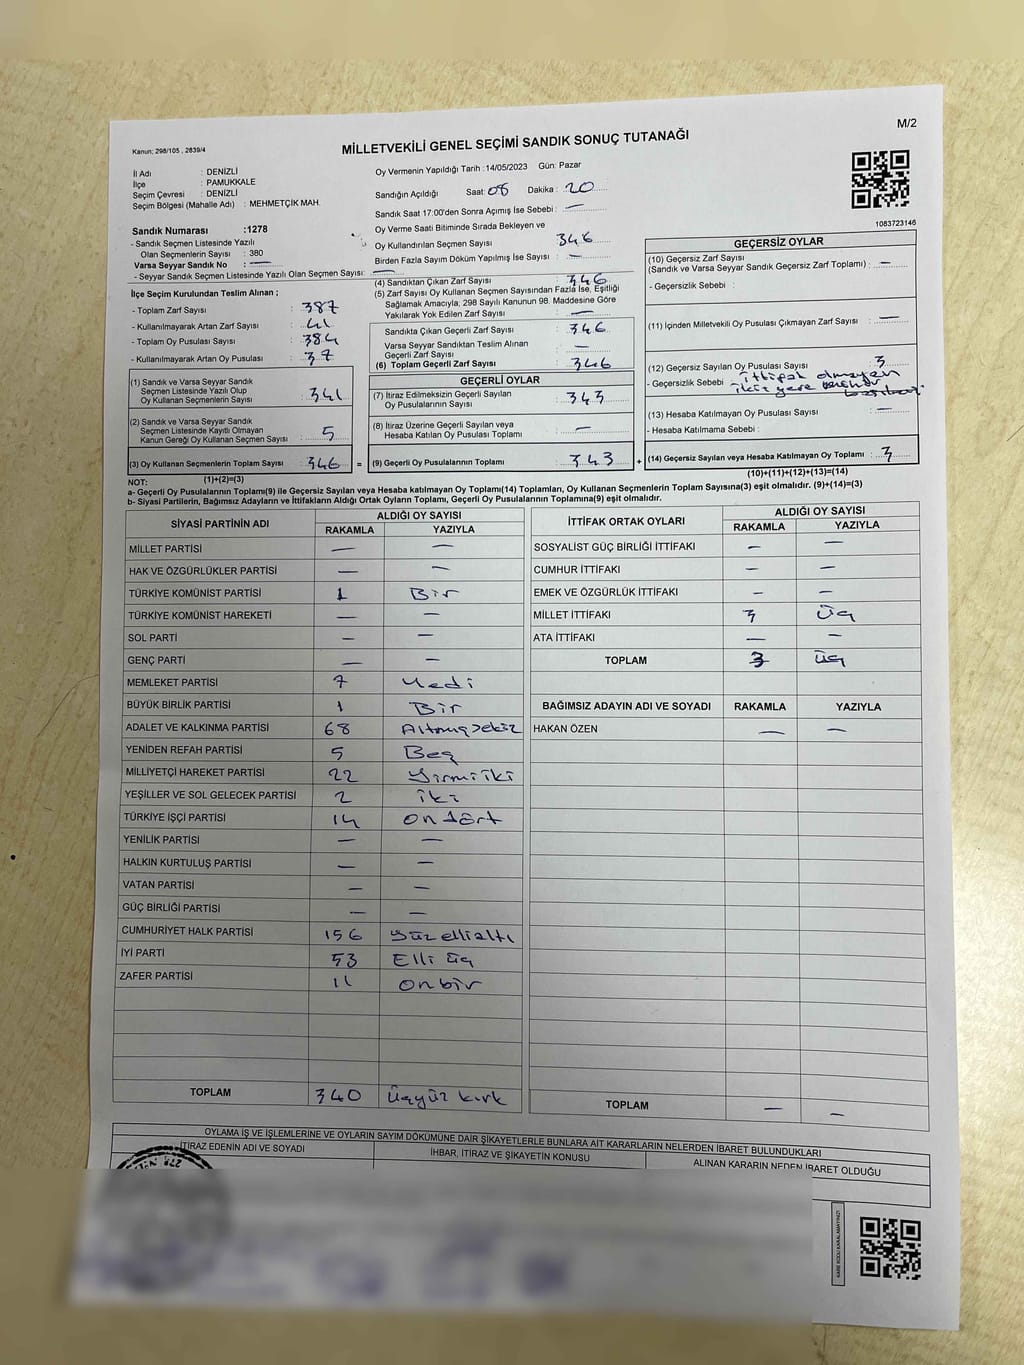 M/2
Kanun: 298/105 , 2839/4
MİLLETVEKİLİ GENEL SEÇİMİ SANDIK SONUÇ TUTANAĞI
İl Adı : DENİZLİ
İlçe : PAMUKKALE
Seçim Çevresi : DENİZLİ
Seçim Bölgesi (Mahalle Adı) : MEHMETÇİK MAH.
Oy Vermenin Yapıldığı Tarih :14/05/2023 Gün: Pazar
Sandığın Açıldığı Saat: 08 Dakika : 20
Sandık Saat 17:00'den Sonra Açımış İse Sebebi : —
1083723146
Sandık Numarası :1278
- Sandık Seçmen Listesinde Yazılı
Olan Seçmenlerin Sayısı : 380
Varsa Seyyar Sandık No : —
- Seyyar Sandık Seçmen Listesinde Yazılı Olan Seçmen Sayısı: —
Oy Verme Saati Bitiminde Sırada Bekleyen ve
Oy Kullandırılan Seçmen Sayısı 346
Birden Fazla Sayım Döküm Yapılmış İse Sayısı : —
İlçe Seçim Kurulundan Teslim Alınan ;
- Toplam Zarf Sayısı : 387
- Kullanılmayarak Artan Zarf Sayısı : 41
- Toplam Oy Pusulası Sayısı : 384
- Kullanılmayarak Artan Oy Pusulası : 37
(1) Sandık ve Varsa Seyyar Sandık
Seçmen Listesinde Yazılı Olup
Oy Kullanan Seçmenlerin Sayısı : 341
(2) Sandık ve Varsa Seyyar Sandık
Seçmen Listesinde Kayıtlı Olmayan
Kanun Gereği Oy Kullanan Seçmen Sayısı : 5
(3) Oy Kullanan Seçmenlerin Toplam Sayısı : 346 =
(1)+(2)=(3)
(4) Sandıktan Çıkan Zarf Sayısı : 346
(5) Zarf Sayısı Oy Kullanan Seçmen Sayısından Fazla İse, Eşitliği
Sağlamak Amacıyla; 298 Sayılı Kanunun 98. Maddesine Göre
Yakılarak Yok Edilen Zarf Sayısı : —
Sandıkta Çıkan Geçerli Zarf Sayısı : 346
Varsa Seyyar Sandıktan Teslim Alınan
Geçerli Zarf Sayısı : —
(6) Toplam Geçerli Zarf Sayısı : 346
GEÇERLİ OYLAR
(7) İtiraz Edilmeksizin Geçerli Sayılan
Oy Pusulalarının Sayısı : 343
(8) İtiraz Üzerine Geçerli Sayılan veya
Hesaba Katılan Oy Pusulası Toplamı : —
(9) Geçerli Oy Pusulalarının Toplamı : 343 +
GEÇERSİZ OYLAR
(10) Geçersiz Zarf Sayısı
(Sandık ve Varsa Seyyar Sandık Geçersiz Zarf Toplamı) : —
- Geçersizlik Sebebi :
(11) İçinden Milletvekili Oy Pusulası Çıkmayan Zarf Sayısı : —
(12) Geçersiz Sayılan Oy Pusulası Sayısı : 3
- Geçersizlik Sebebi : ittifak olmayan
iki yere
(13) Hesaba Katılmayan Oy Pusulası Sayısı : —
- Hesaba Katılmama Sebebi :
(14) Geçersiz Sayılan veya Hesaba Katılmayan Oy Toplamı : 3
(10)+(11)+(12)+(13)=(14)
NOT:
a- Geçerli Oy Pusulalarının Toplamı(9) ile Geçersiz Sayılan veya Hesaba katılmayan Oy Toplamı(14) Toplamları, Oy Kullanan Seçmenlerin Toplam Sayısına(3) eşit olmalıdır. (9)+(14)=(3)
b- Siyasi Partilerin, Bağımsız Adayların ve İttifakların Aldığı Ortak Oyların Toplamı, Geçerli Oy Pusulalarının Toplamına(9) eşit olmalıdır.
SİYASİ PARTİNİN ADI ALDIĞI OY SAYISI
RAKAMLA YAZIYLA
MİLLET PARTİSİ — —
HAK VE ÖZGÜRLÜKLER PARTİSİ — —
TÜRKİYE KOMÜNİST PARTİSİ 1 Bir
TÜRKİYE KOMÜNİST HAREKETİ — —
SOL PARTİ — —
GENÇ PARTİ — —
MEMLEKET PARTİSİ 7 Yedi
BÜYÜK BİRLİK PARTİSİ 1 Bir
ADALET VE KALKINMA PARTİSİ 68 Altmışsekiz
YENİDEN REFAH PARTİSİ 5 Beş
MİLLİYETÇİ HAREKET PARTİSİ 22 Yirmiiki
YEŞİLLER VE SOL GELECEK PARTİSİ 2 iki
TÜRKİYE İŞÇİ PARTİSİ 14 ondört
YENİLİK PARTİSİ — —
HALKIN KURTULUŞ PARTİSİ — —
VATAN PARTİSİ — —
GÜÇ BİRLİĞİ PARTİSİ — —
CUMHURİYET HALK PARTİSİ 156 yüz ellialtı
İYİ PARTİ 53 Elli üç
ZAFER PARTİSİ 11 onbir
TOPLAM 340 üçyüz kırk
İTTİFAK ORTAK OYLARI ALDIĞI OY SAYISI
RAKAMLA YAZIYLA
SOSYALİST GÜÇ BİRLİĞİ İTTİFAKI — —
CUMHUR İTTİFAKI — —
EMEK VE ÖZGÜRLÜK İTTİFAKI — —
MİLLET İTTİFAKI 3 üç
ATA İTTİFAKI — —
TOPLAM 3 üç
BAĞIMSIZ ADAYIN ADI VE SOYADI RAKAMLA YAZIYLA
HAKAN ÖZEN — —
TOPLAM — —
OYLAMA İŞ VE İŞLEMLERİNE VE OYLARIN SAYIM DÖKÜMÜNE DAİR ŞİKAYETLERLE BUNLARA AİT KARARLARIN NELERDEN İBARET BULUNDUKLARI
İTİRAZ EDENİN ADI VE SOYADI İHBAR, İTİRAZ VE ŞİKAYETİN KONUSU ALINAN KARARIN NEDEN İBARET OLDUĞU
KARE KODU KARALAMAYINIZ!